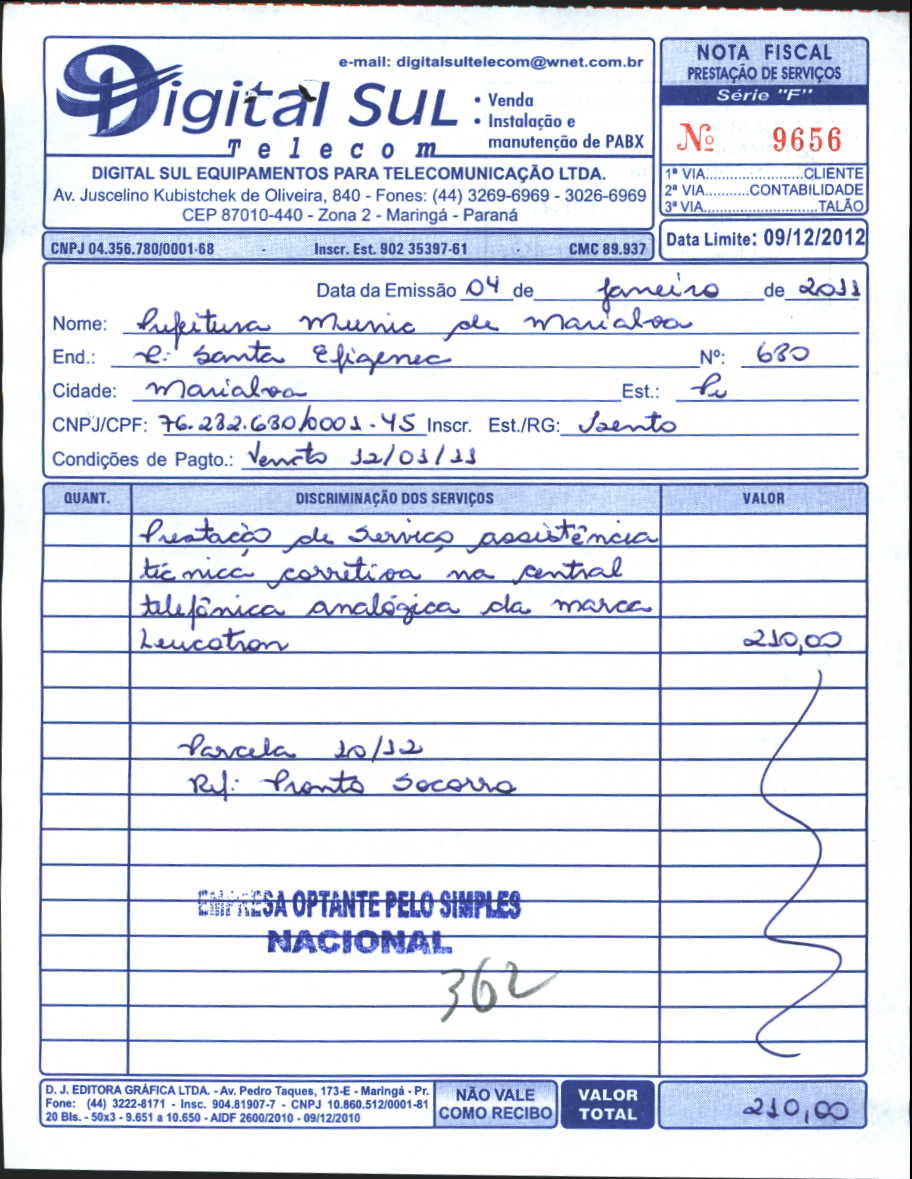 e-mail: digitalsultelecom@wnet.com.br
Digital Sul
Telecom
• Venda
• Instalação e
manutenção de PABX
DIGITAL SUL EQUIPAMENTOS PARA TELECOMUNICAÇÃO LTDA.
Av. Juscelino Kubistchek de Oliveira, 840 - Fones: (44) 3269-6969 - 3026-6969
CEP 87010-440 - Zona 2 - Maringá - Paraná
CNPJ 04.356.780/0001-68 - Inscr. Est. 902 35397-61 - CMC 89.937
NOTA FISCAL
PRESTAÇÃO DE SERVIÇOS
Série "F"
Nº 9656
1ª VIA......................CLIENTE
2ª VIA..........CONTABILIDADE
3ª VIA............................TALÃO
Data Limite: 09/12/2012
Data da Emissão 04 de Janeiro de 2011
Nome: Prefeitura Munic de Marialva
End.: R: Santa Efigenec Nº: 680
Cidade: Marialva Est.: Pr
CNPJ/CPF: 76.282.680/0001-45 Inscr. Est./RG: Isento
Condições de Pagto.: Vencto 12/01/11
QUANT. DISCRIMINAÇÃO DOS SERVIÇOS VALOR
Prestação de serviço assistência
técnica corretiva na central
telefônica analógica da marca
Leucotron 210,00
Parcela 10/12
Ref: Pronto Socorro
EMPRESA OPTANTE PELO SIMPLES
NACIONAL
362
D. J. EDITORA GRÁFICA LTDA. - Av. Pedro Taques, 173-E - Maringá - Pr.
Fone: (44) 3222-8171 - Insc. 904.81907-7 - CNPJ 10.860.512/0001-81
20 Bls. - 50x3 - 9.651 a 10.650 - AIDF 2600/2010 - 09/12/2010
NÃO VALE
COMO RECIBO
VALOR
TOTAL
210,00